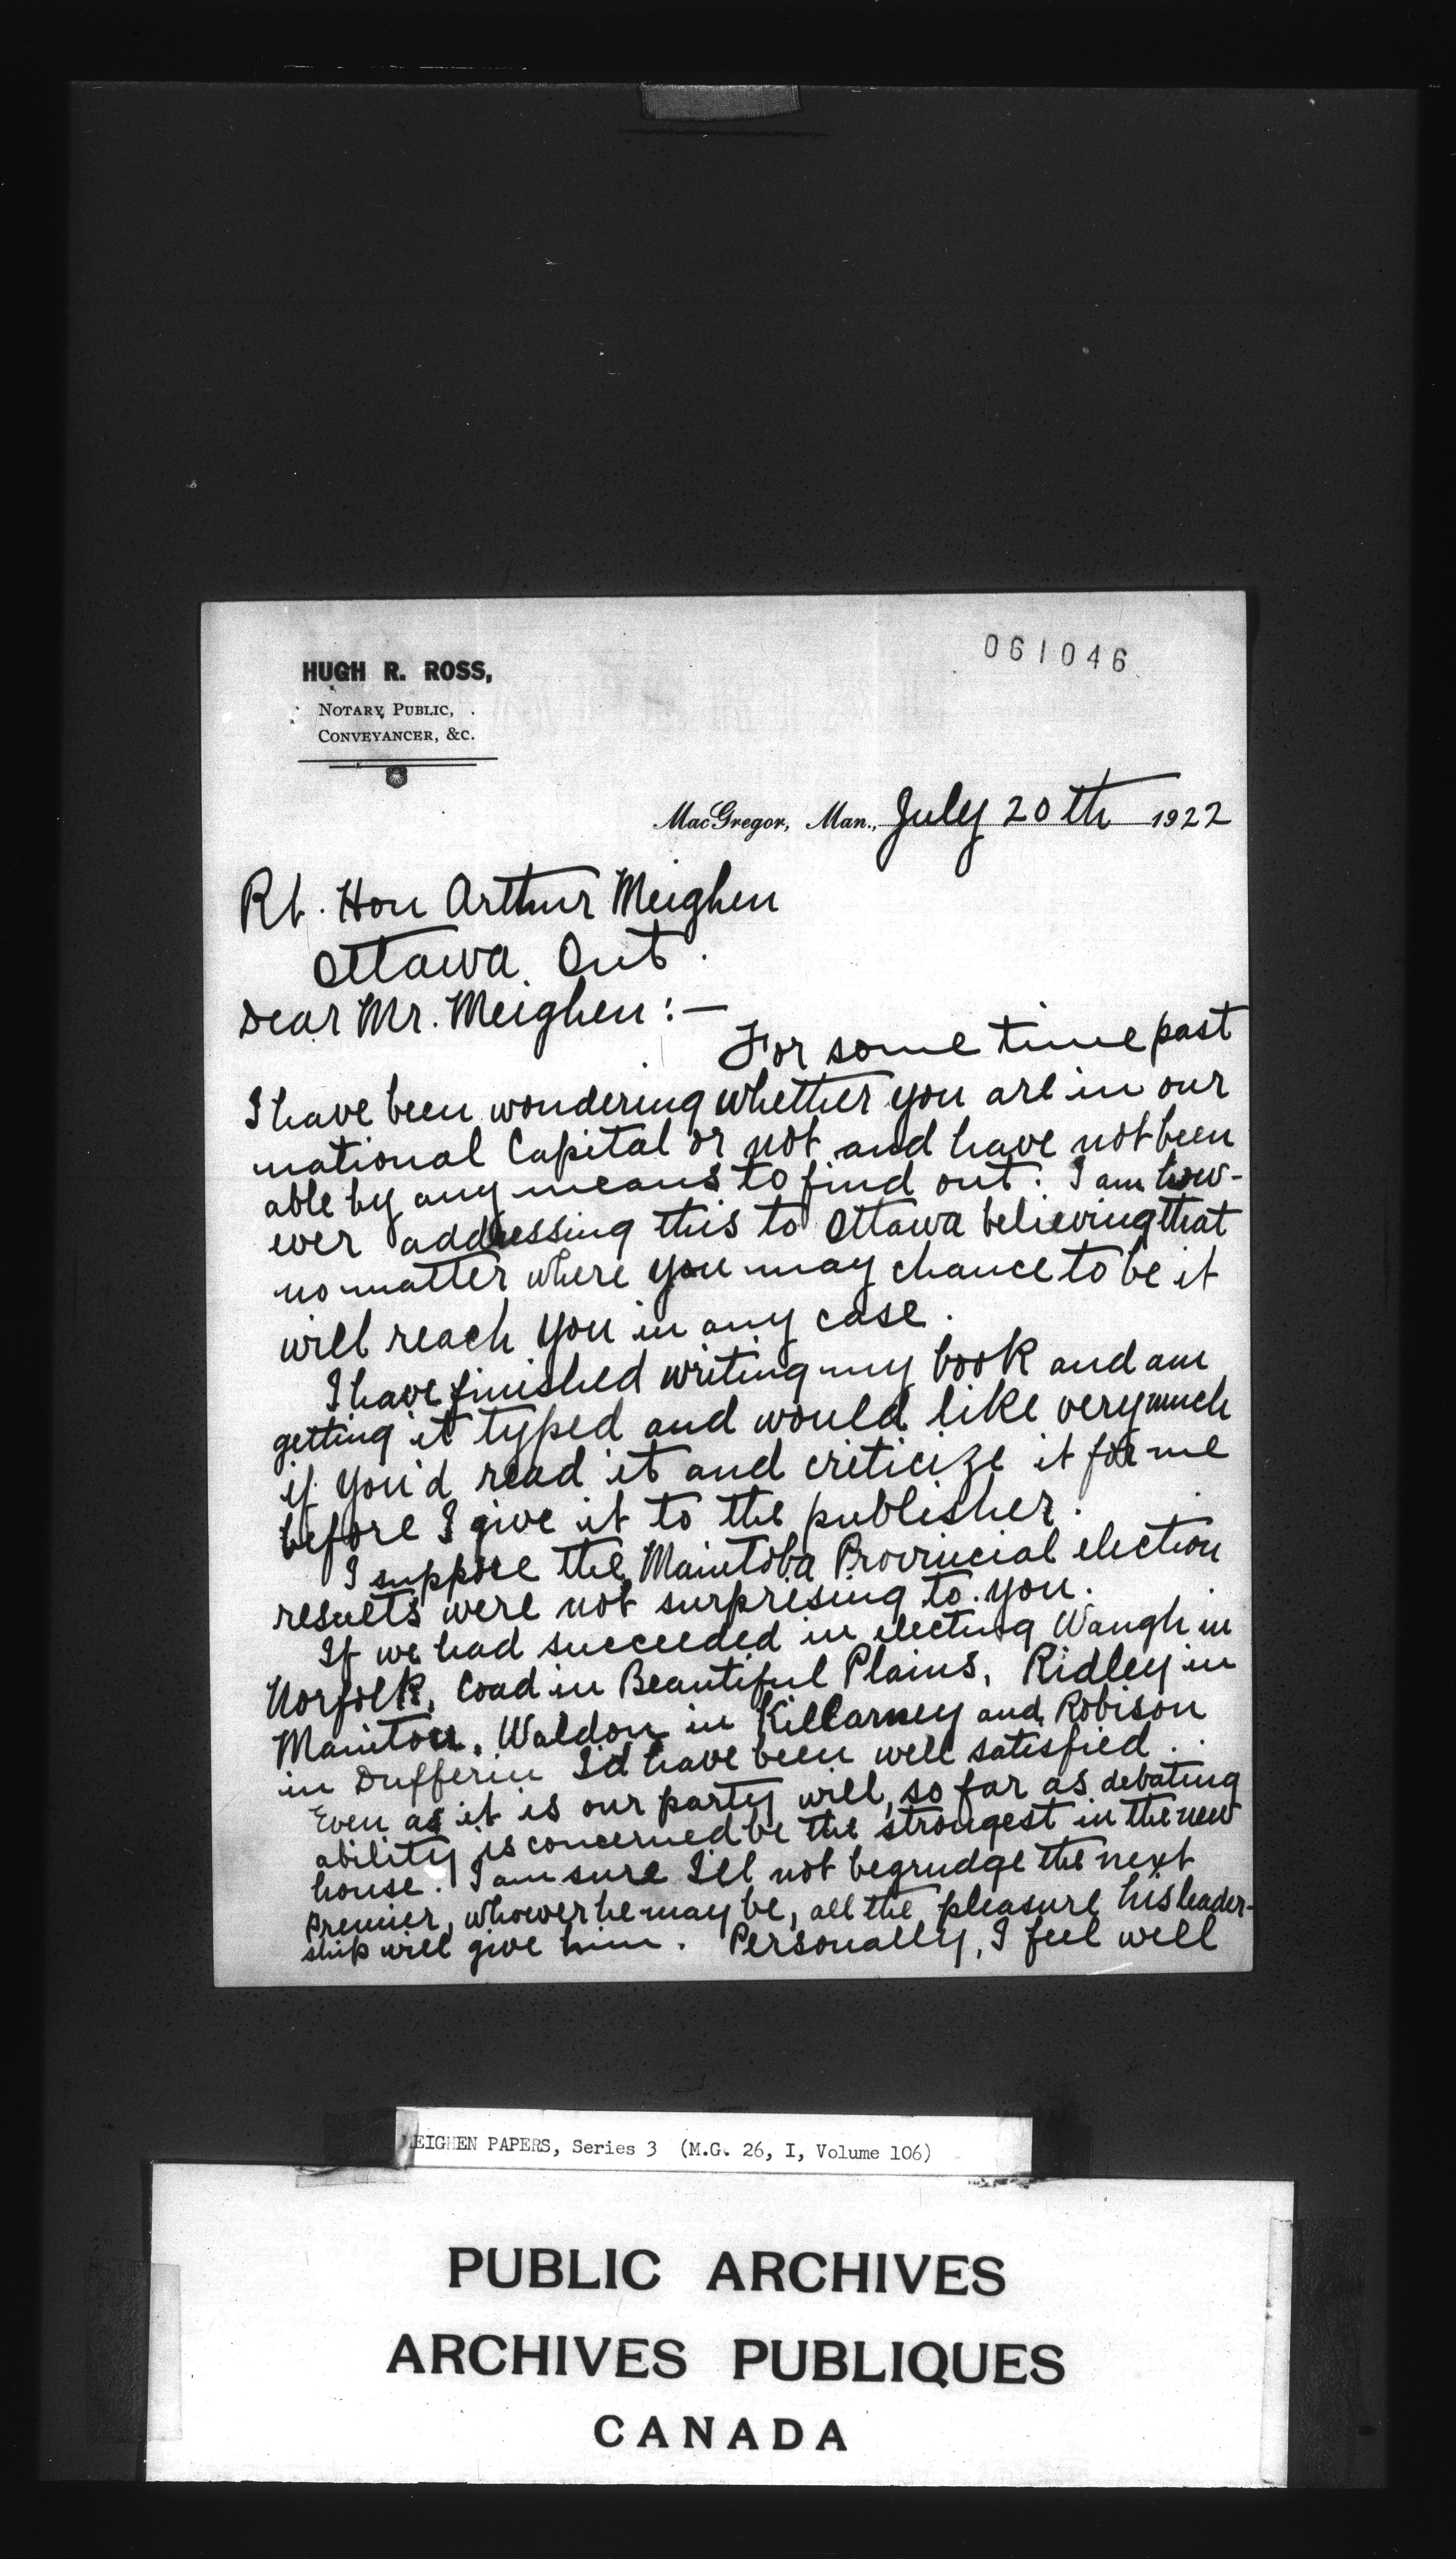 061046
HUGH R. ROSS,
NOTARY PUBLIC,
CONVEYANCER, &C.
MacGregor, Man., July 20th 1922
Rt. Hon Arthur Meighen
Ottawa, Ont.
Dear Mr. Meighen:—
For some time past
I have been wondering whether you are in our
national Capital or not and have not been
able by any means to find out. I am how-
ever addressing this to Ottawa believing that
no matter where you may chance to be it
will reach you in any case.
I have finished writing my book and am
getting it typed and would like very much
if you'd read it and criticize it for me
before I give it to the publisher.
I suppose the Manitoba Provincial election
results were not surprising to you.
If we had succeeded in electing Waugh in
Norfolk, Coad in Beautiful Plains, Ridley in
Manitou, Waldon in Killarney and Robison
in Dufferin I'd have been well satisfied.
Even as it is our party will, so far as debating
ability is concerned be the strongest in the new
house. I am sure I'll not begrudge the next
Premier, whoever he may be, all the pleasure his leader-
ship will give him. Personally, I feel well
EIGHEN PAPERS, Series 3 (M.G. 26, I, Volume 106)
PUBLIC ARCHIVES
ARCHIVES PUBLIQUES
CANADA